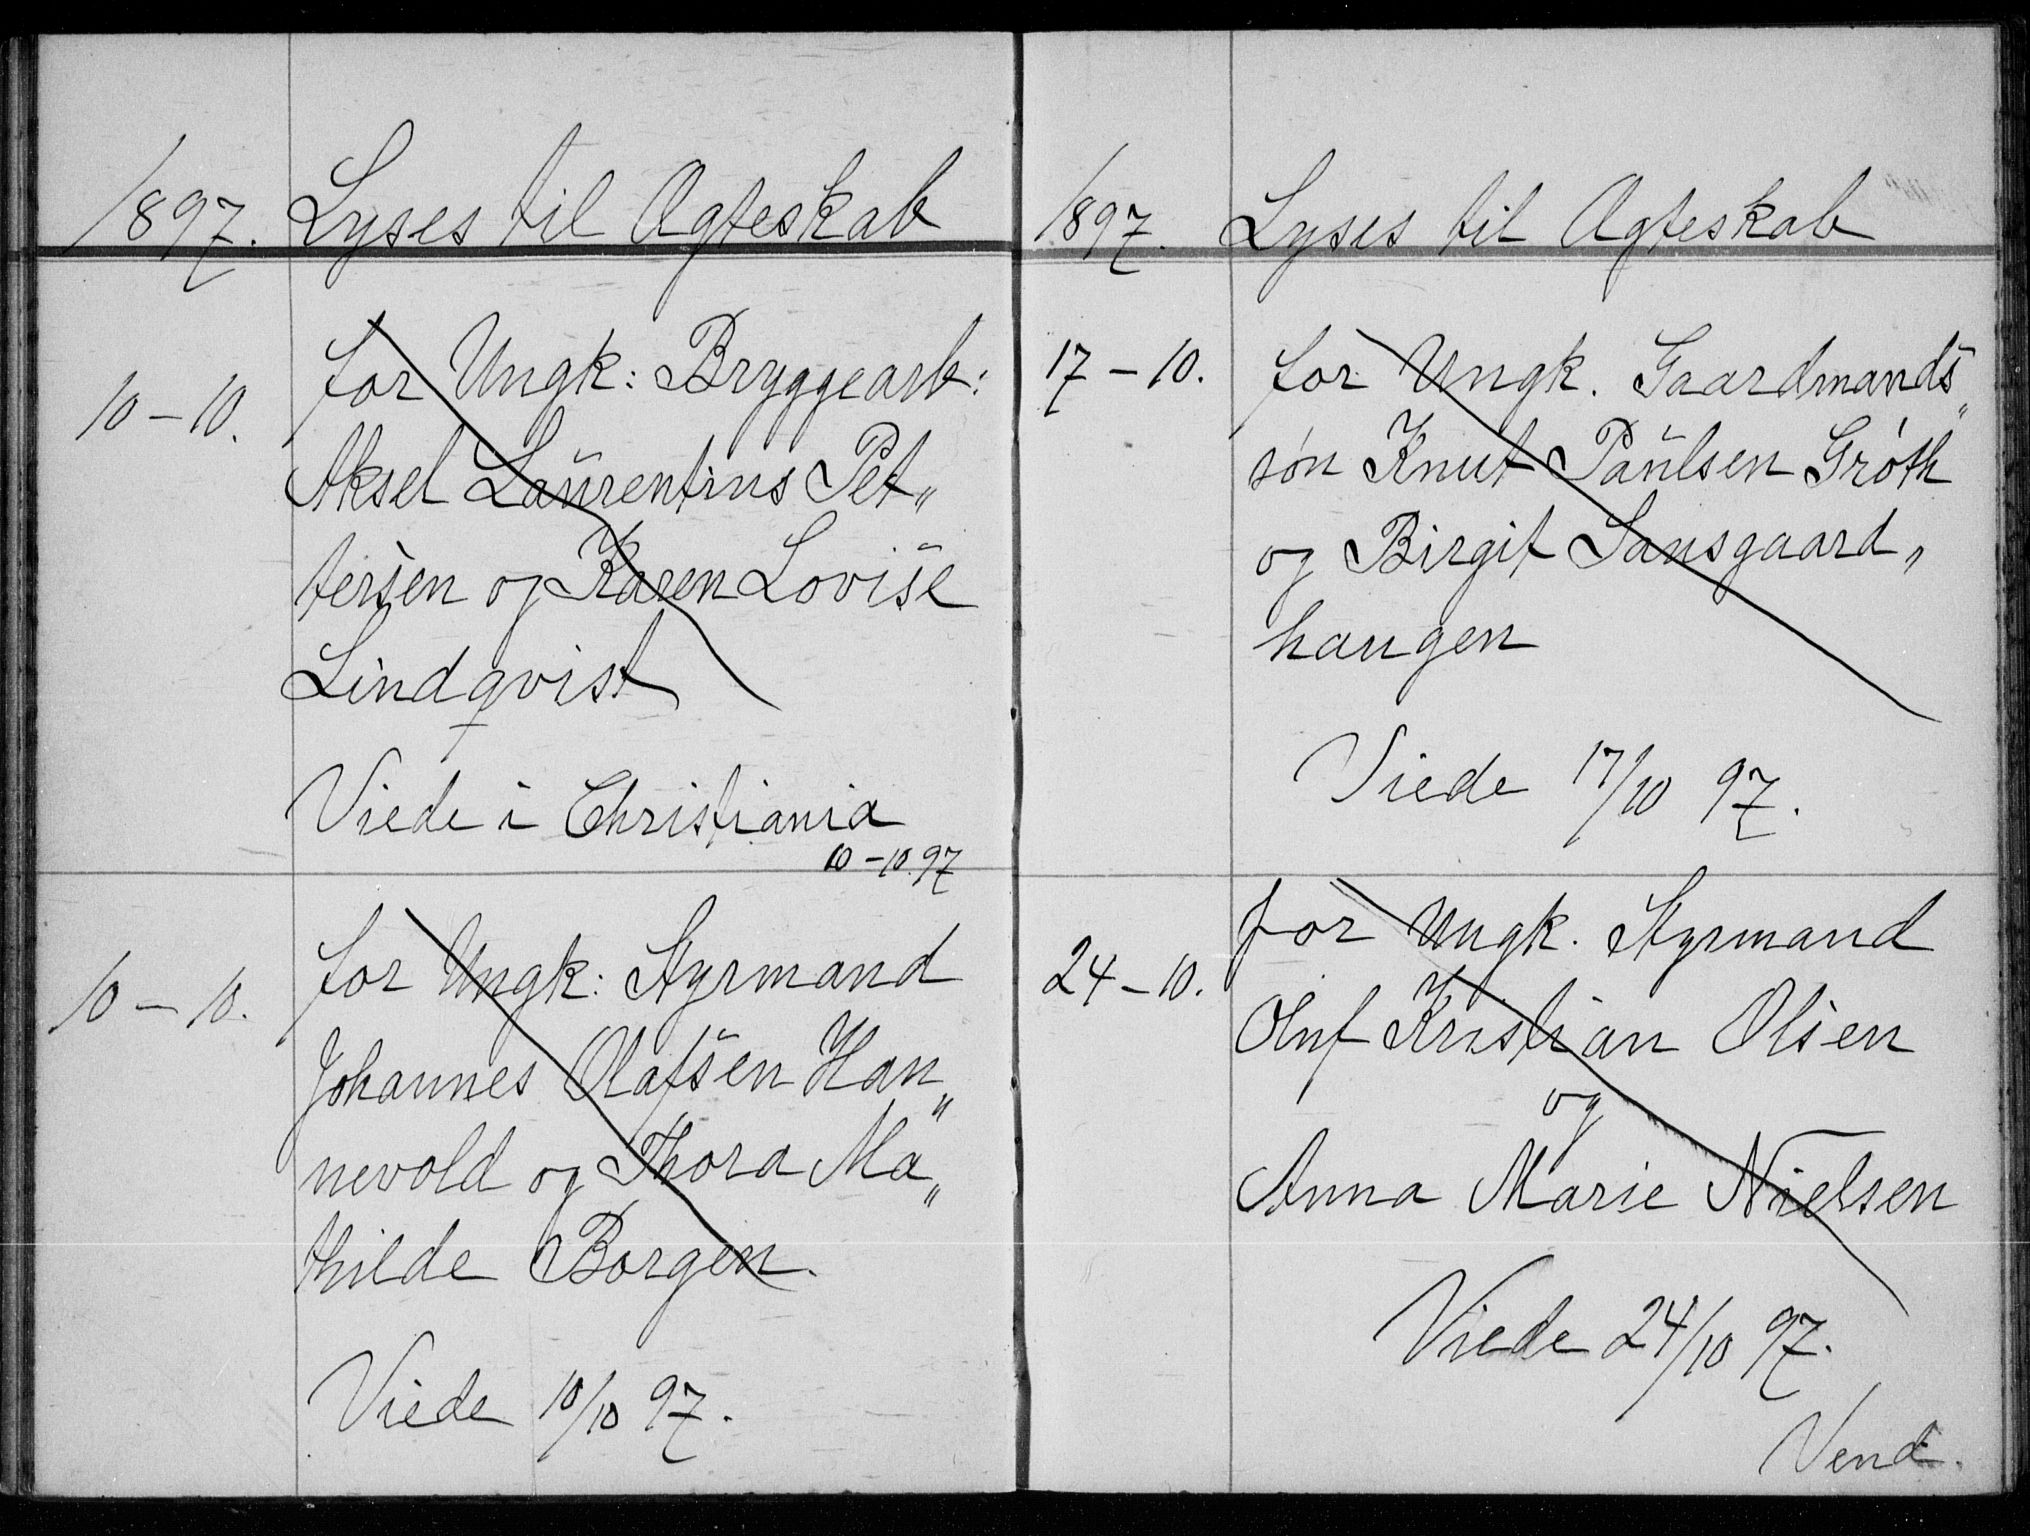 1897. Lyses til Ægteskab
10-10. for Ungk: Bryggearb:
Aksel Laurentius Pet„
tersen og Karen Lovise
Lindqvist
Viede i Christiania
10-10.97
10-10. for Ungk: Styrmand
Johannes Olafsen Han„
nevold og Thora Ma„
thilde Borgen.
Viede 10/10 97.
1897. Lyses til Ægteskab
17-10. for Ungk. Gaardmands„
søn Knut Paulsen Grøth
og Birgit Sansgaard„
haugen
Viede 17/10 97.
24-10. for Ungk. Styrmand
Oluf Kristian Olsen
og
Anna Marie Nielsen
Viede 24/10 97.
Vend.